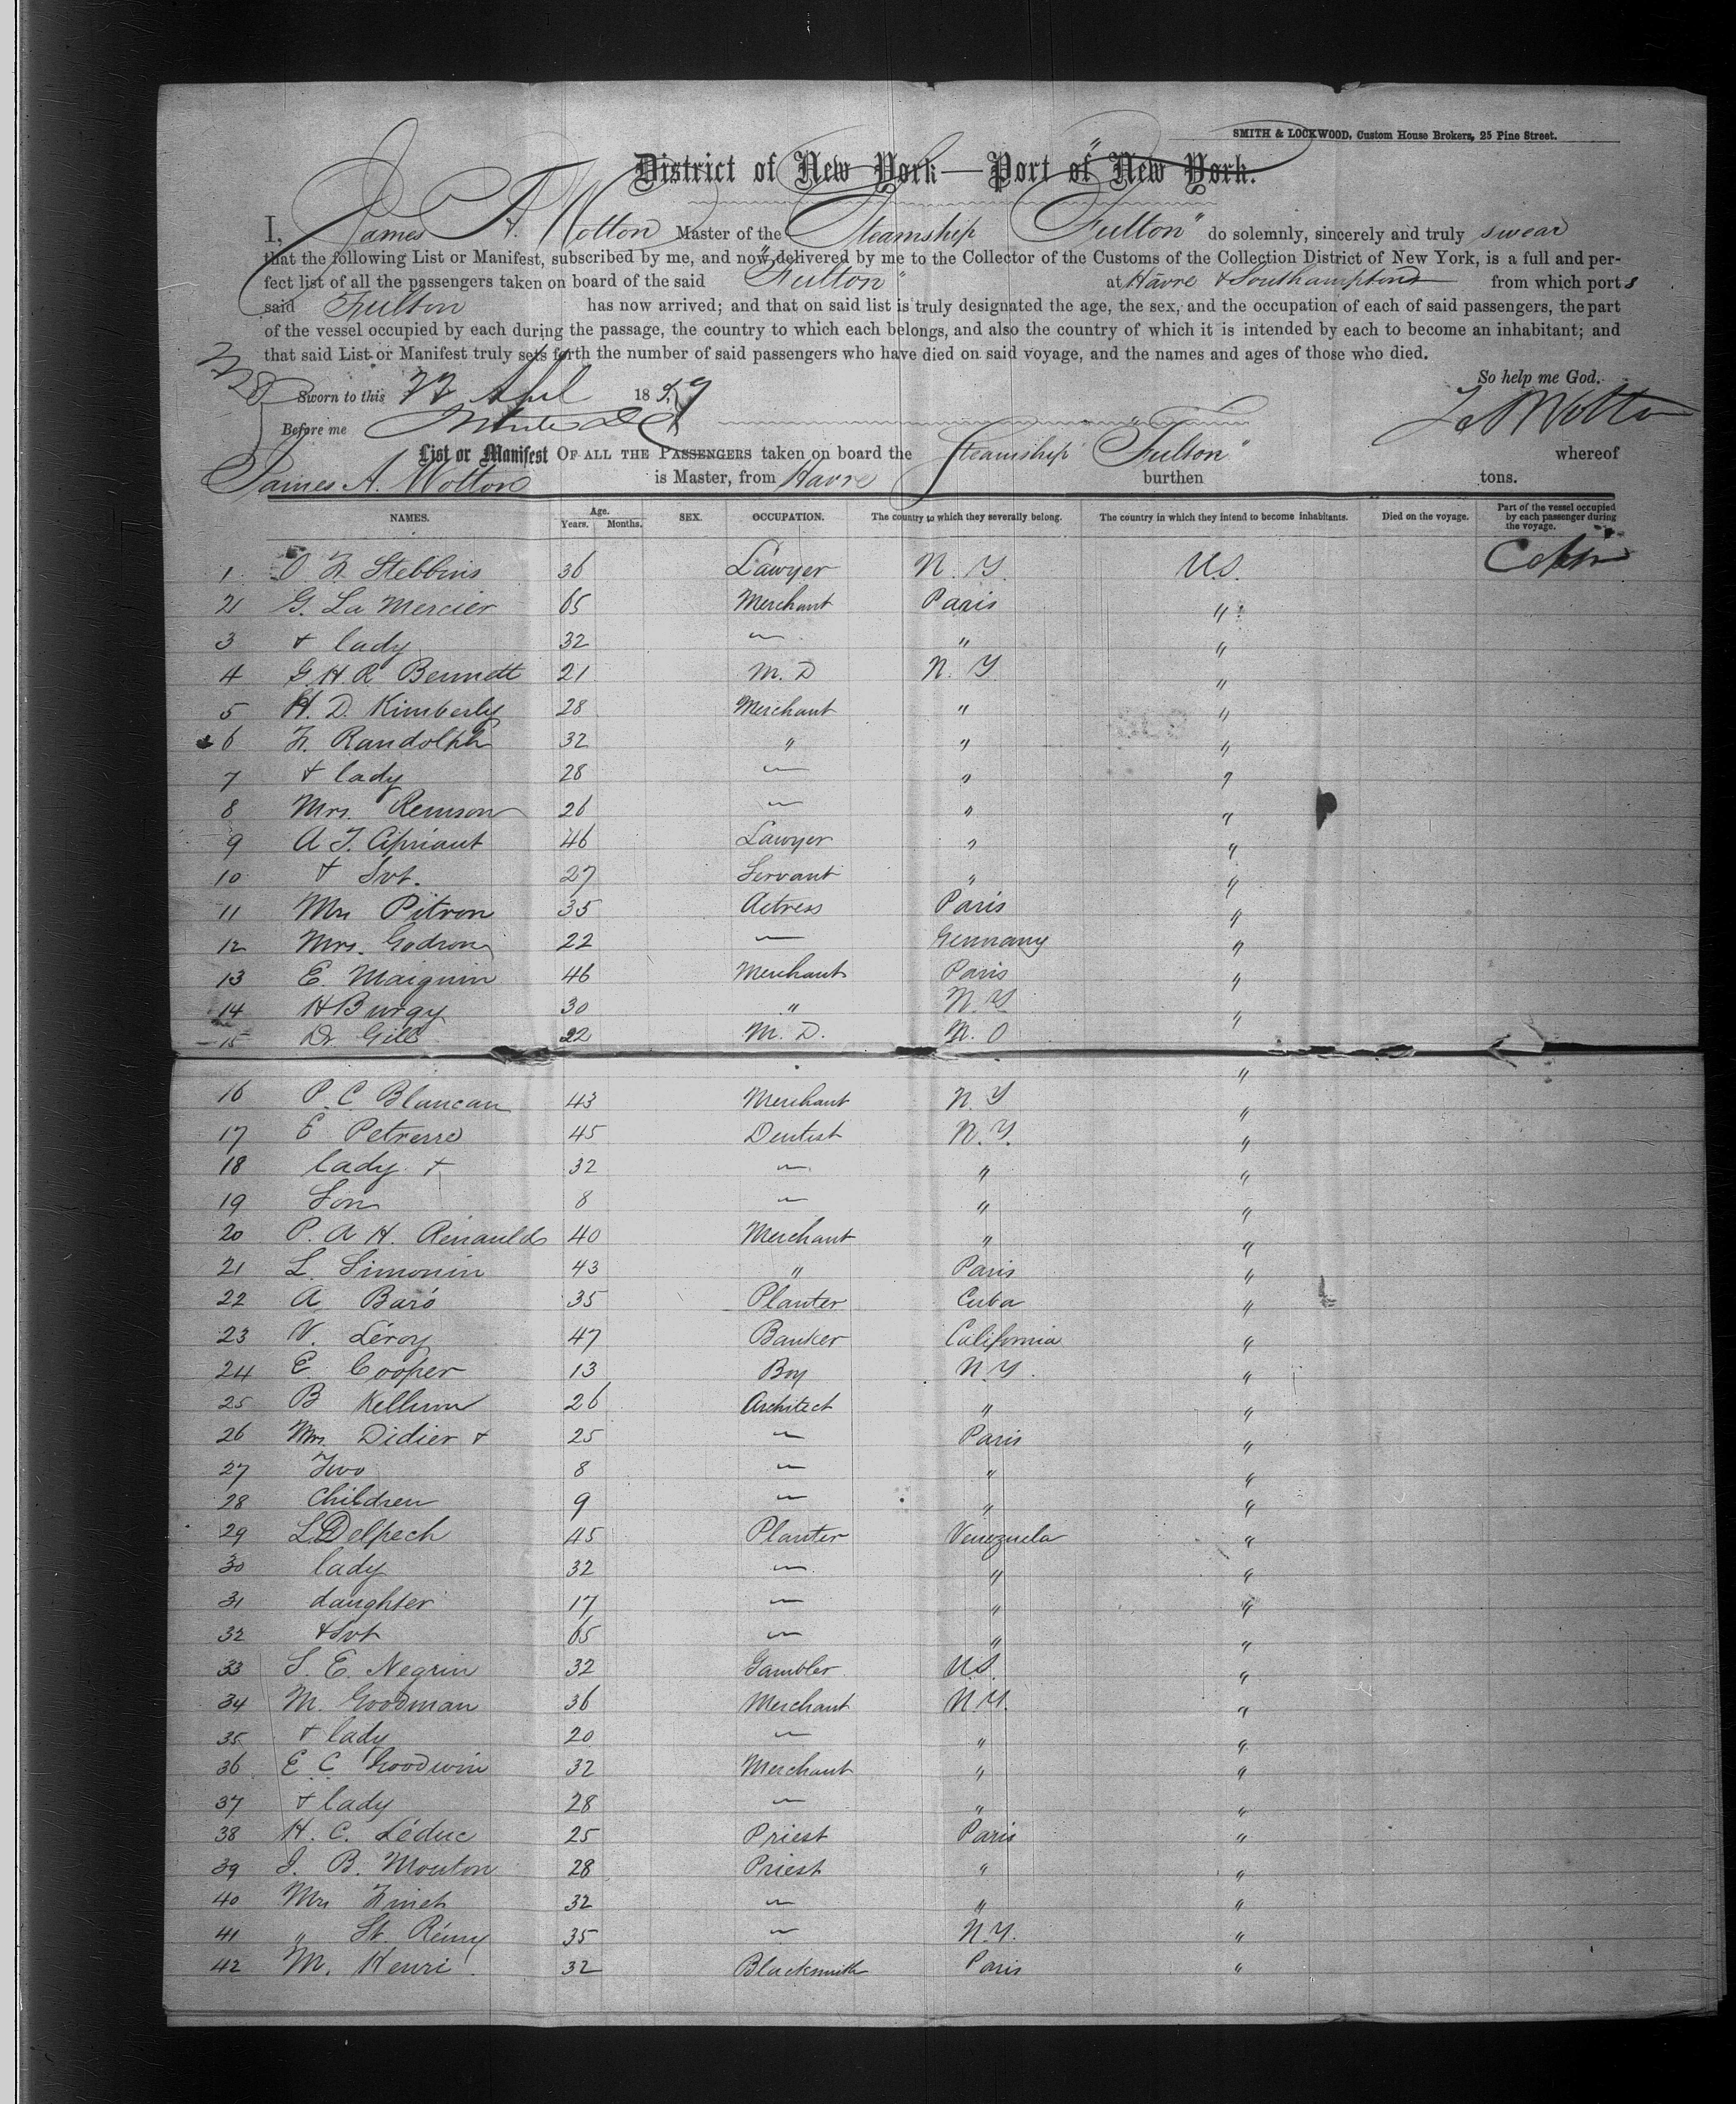 SMITH & LOCKWOOD, Custom House Brokers, 25 Pine Street.
District of New York—Port of New York.
I, James A. Wotton Master of the Steamship "Fulton" do solemnly, sincerely and truly swear
that the following List or Manifest, subscribed by me, and now delivered by me to the Collector of the Customs of the Collection District of New York, is a full and per-
fect list of all the passengers taken on board of the said "Fulton" at Havre & Southampton from which ports
said Fulton has now arrived; and that on said list is truly designated the age, the sex, and the occupation of each of said passengers, the part
of the vessel occupied by each during the passage, the country to which each belongs, and also the country of which it is intended by each to become an inhabitant; and
that said List or Manifest truly sets forth the number of said passengers who have died on said voyage, and the names and ages of those who died.
So help me God.
328
Sworn to this 22 April 1859
Before me
List or Manifest OF ALL THE PASSENGERS taken on board the Steamship "Fulton" whereof
James A. Wotton is Master, from Havre burthen tons.
NAMES. Age. Years. Months. SEX. OCCUPATION. The country to which they severally belong. The country in which they intend to become inhabitants. Died on the voyage. Part of the vessel occupied by each passenger during the voyage.
1 O F. Stebbins 36 Lawyer N. Y. U.S. Cabin
2 G. La Mercier 65 Merchant Paris "
3 + lady 32 — " "
4 G. H. R. Bennett 21 M. D N. Y "
5 H. D. Kimberly 28 Merchant " "
6 F. Randolph 32 " " "
7 + lady 28 — " "
8 Mrs. Remson 26 — " "
9 A. F. 46 Lawyer " "
10 + Svt. 27 Servant " "
11 Mrs Pitron 35 Actress Paris "
12 Mrs. Godron 22 — Germany "
13 E. Maignin 46 Merchant Paris "
14 H Burgy 30 " N. Y "
15 Dr Gill 22 M. D. N. O "
16 P. C. Blancan 43 Merchant N. Y "
17 E Petrerre 45 Dentist N. Y. "
18 lady + 32 — " "
19 Son 8 — " "
20 P. A H. Renauld 40 Merchant " "
21 L. Simonin 43 " Paris "
22 A Baró 35 Planter Cuba "
23 V. Léroy 47 Banker California "
24 E. Cooper 13 Boy N. Y. "
25 B Kellum 26 Architect " "
26 Mrs Didier + 25 — Paris "
27 Two 8 — " "
28 Children 9 — " "
29 L. D Delpech 45 Planter Venezuela "
30 lady 32 — " "
31 daughter 17 — " "
32 + Svt 65 — " "
33 S. E. Negrin 32 Gambler U.S. "
34 M. Goodman 36 Merchant N. Y. "
35 + lady 20 — " "
36 E C Goodwin 32 Merchant " "
37 + lady 28 — " "
38 H. C. Léduc 25 Priest Paris "
39 J. B. Mouton 28 Priest " "
40 Mrs Finet 32 — " "
41 " St. Rémy 35 — N. Y. "
42 M. Henri 32 Blacksmith Paris "